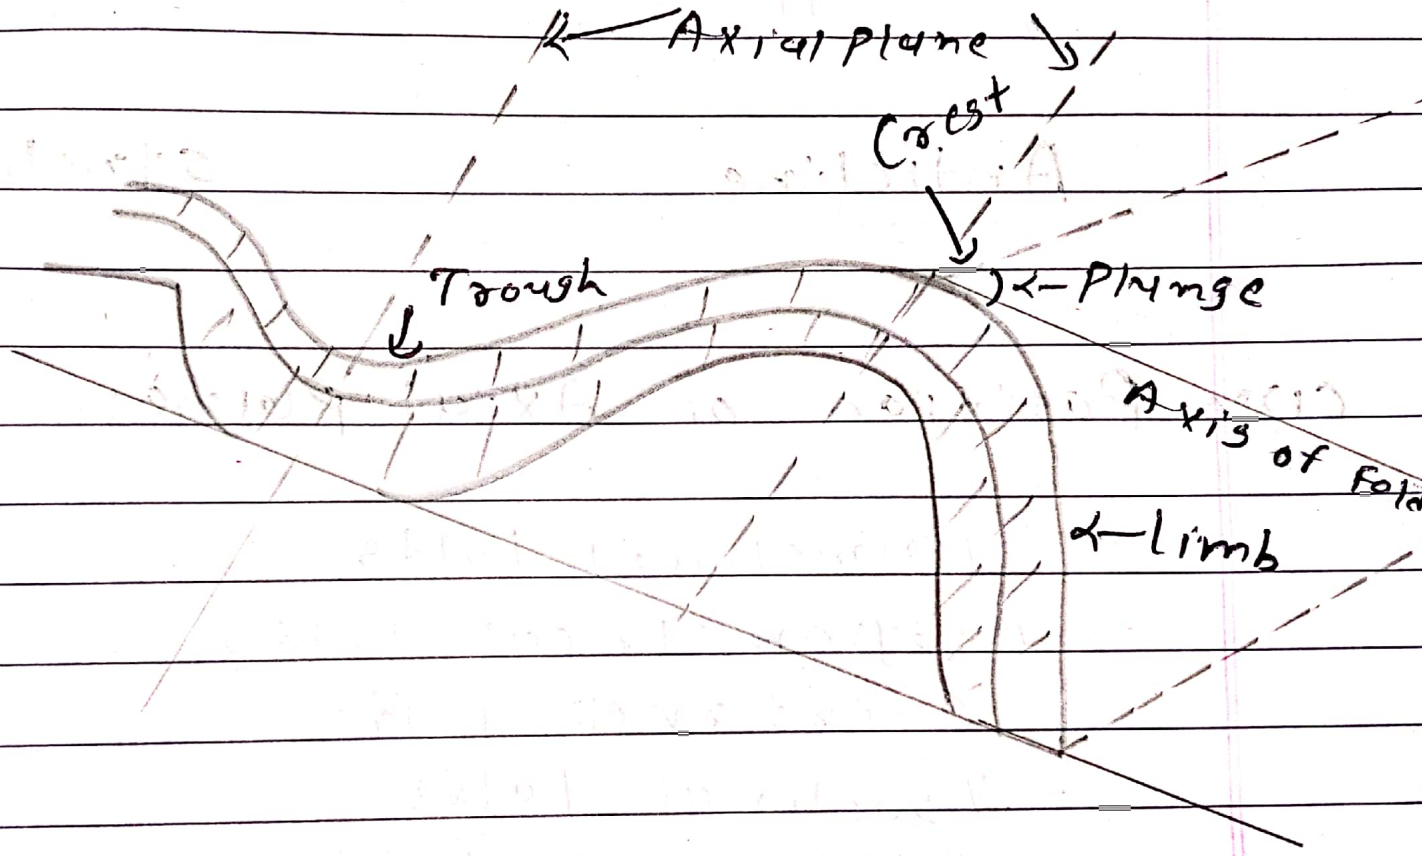 Axial plane
Crest
Trough
Plunge
Axis of Fold
limb